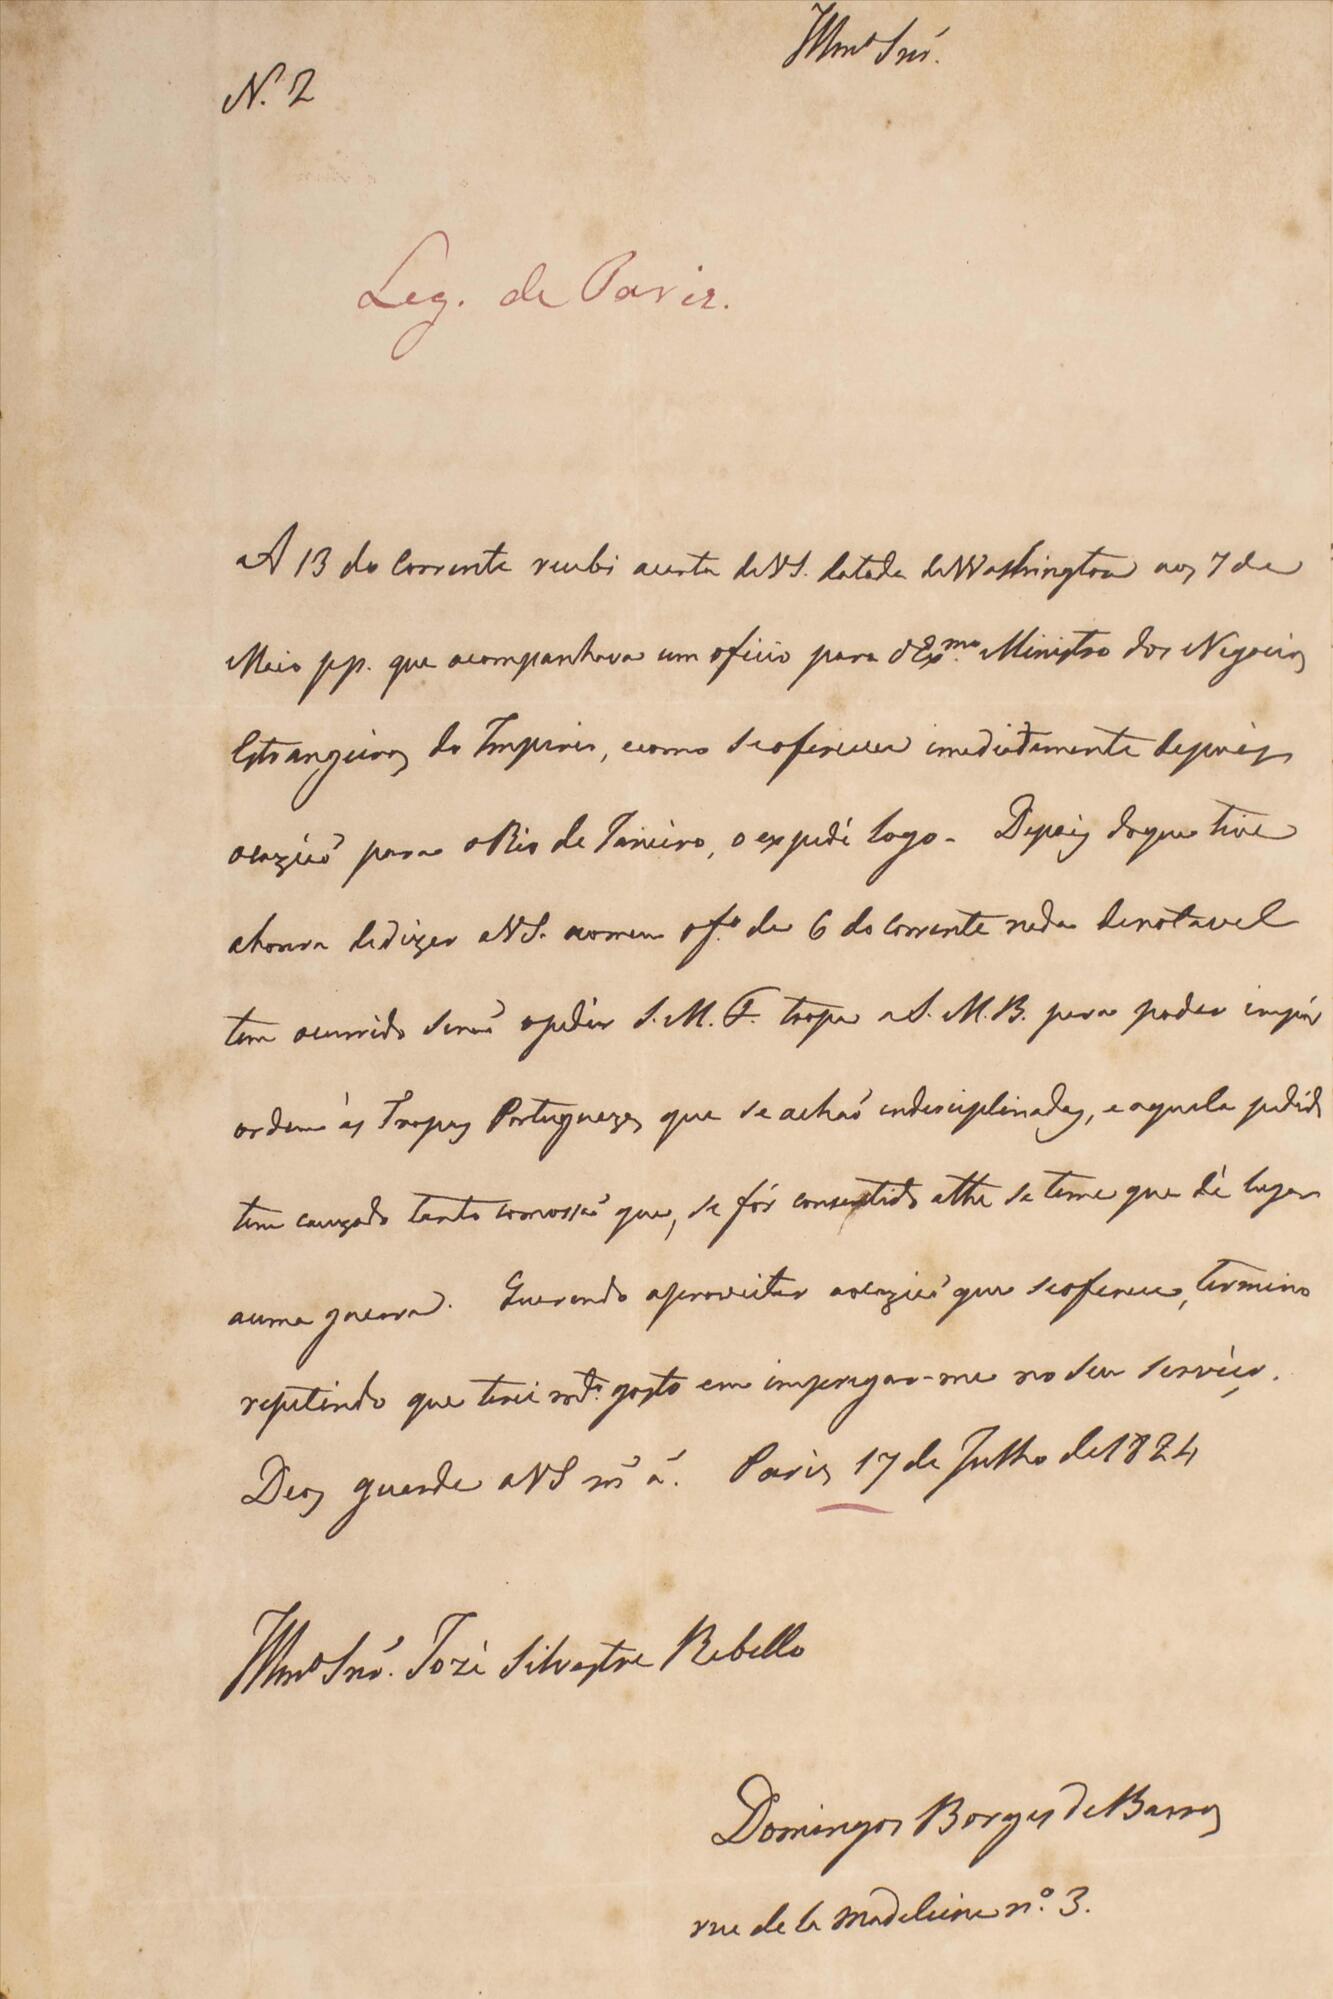 Illmo Snr.
N. 2
Leg. de Paris.
A 13 do Corrente recebi acarta deVS. datada deWashington aos 7 de
Maio pp. que acompanhava um oficio para oExmo. Ministro dos Negocios
Estrangeiros do Imperio, ecomo seofereceu imediatamente depois
ocazião para oRio de Janeiro, o expedi logo. Depois doque tive
ahonra dedizer aVS. aomeu ofo. de 6 do Corrente nada denotavel
tem ocurrido senão opedir S. M. F. tropa aS. M. B. para poder impôr
ordem ás Tropas Portuguezas que se achão indisciplinadas, e aquele pedido
tem cauzado tanta comossão que, se fôr consentido athe se teme que dê lugar
auma guerra. Querendo aproveitar aocazião que seoferece, termino
repetindo que terei mto. gosto em impregar-me no seu serviço.
Deos guarde aVS ms as. Paris 17 de Julho de 1824
Illmo Snr. Jozé Silvestre Rebello
Domingos Borges de Barros
rue de la Madeleine nº. 3.